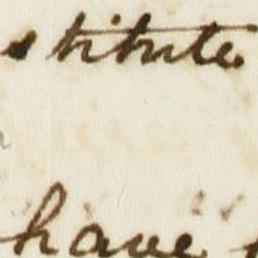 stitute
have